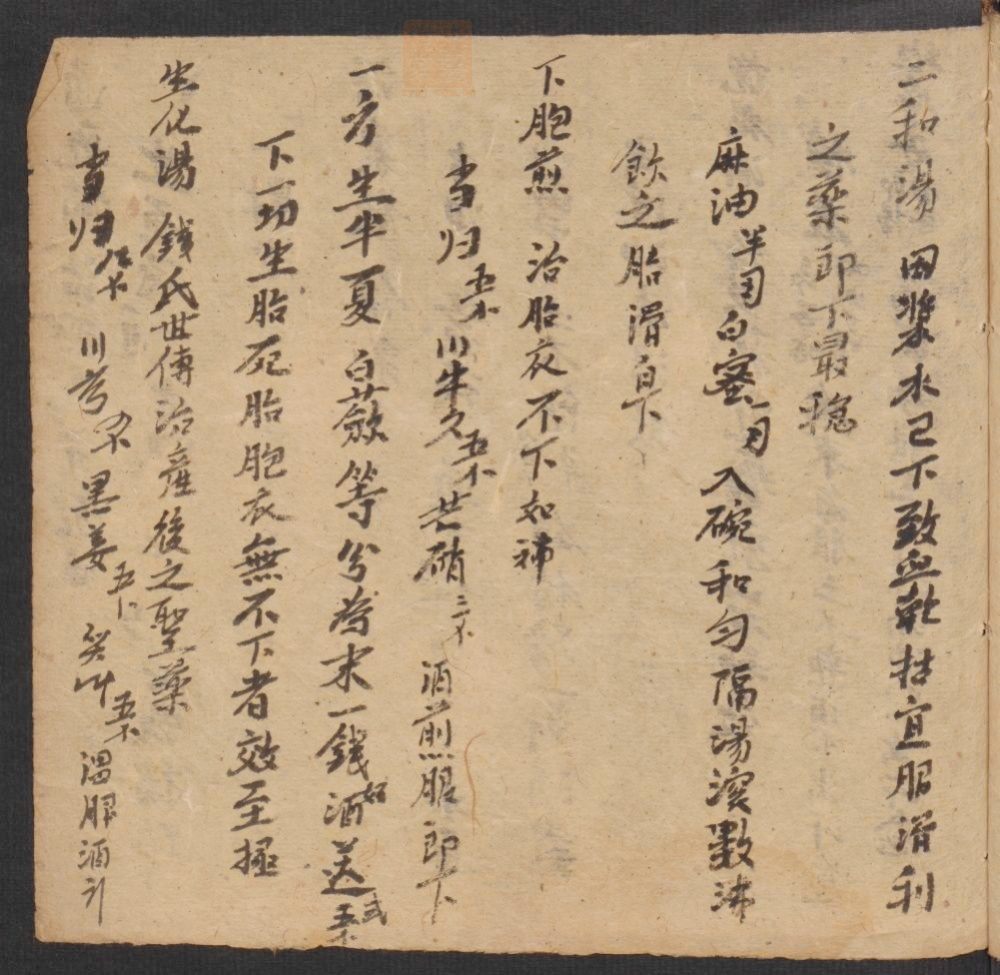 二和湯 因漿水已下致血乾枯宜服滑利
之藥即下最穏
麻油半 白蜜一 入碗和匀隔湯滚數沸
飲之胎滑自下
下胞煎 治胎衣不下如神
当归 川牛夕 芒硝三 酒煎服即下
一方生半夏白蔹等分為末一錢 酒送
下一切生胎死胎胞衣無不下者效至極
生化湯 錢氏世傳治產後之聖藥
当归 川芎 黑姜五 温服酒引